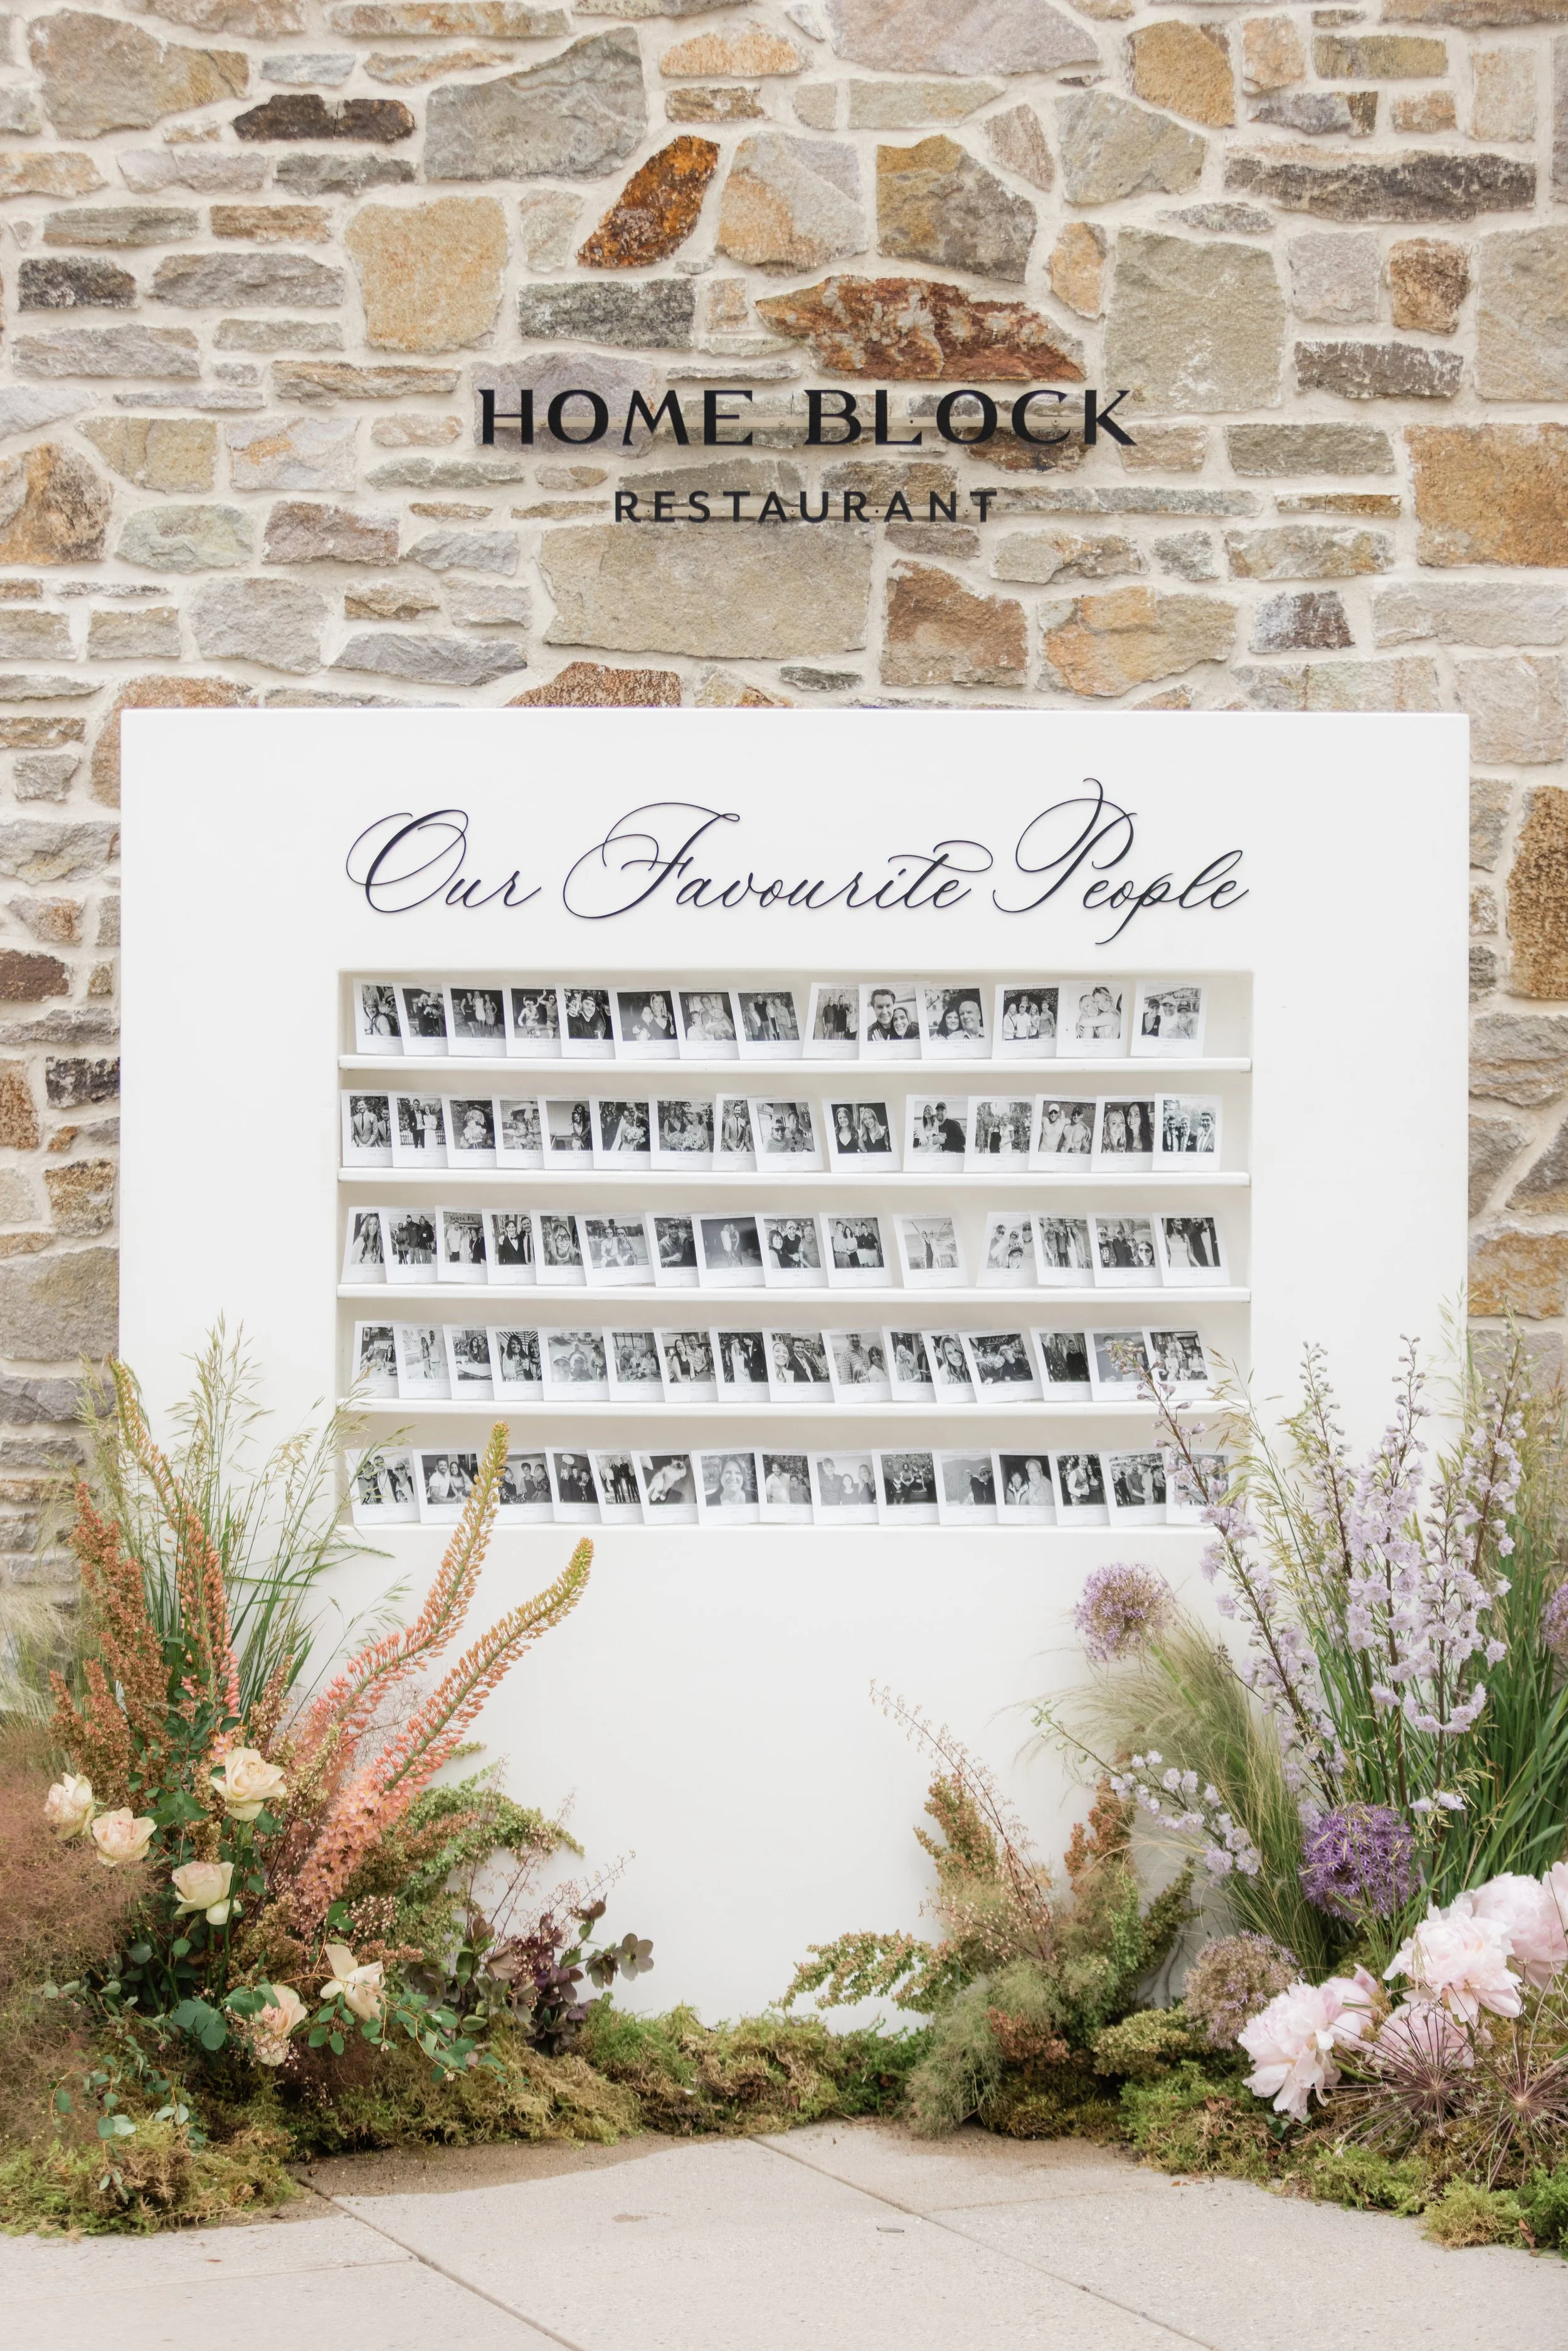 HOME BLOCK
RESTAURANT
Our Favourite People